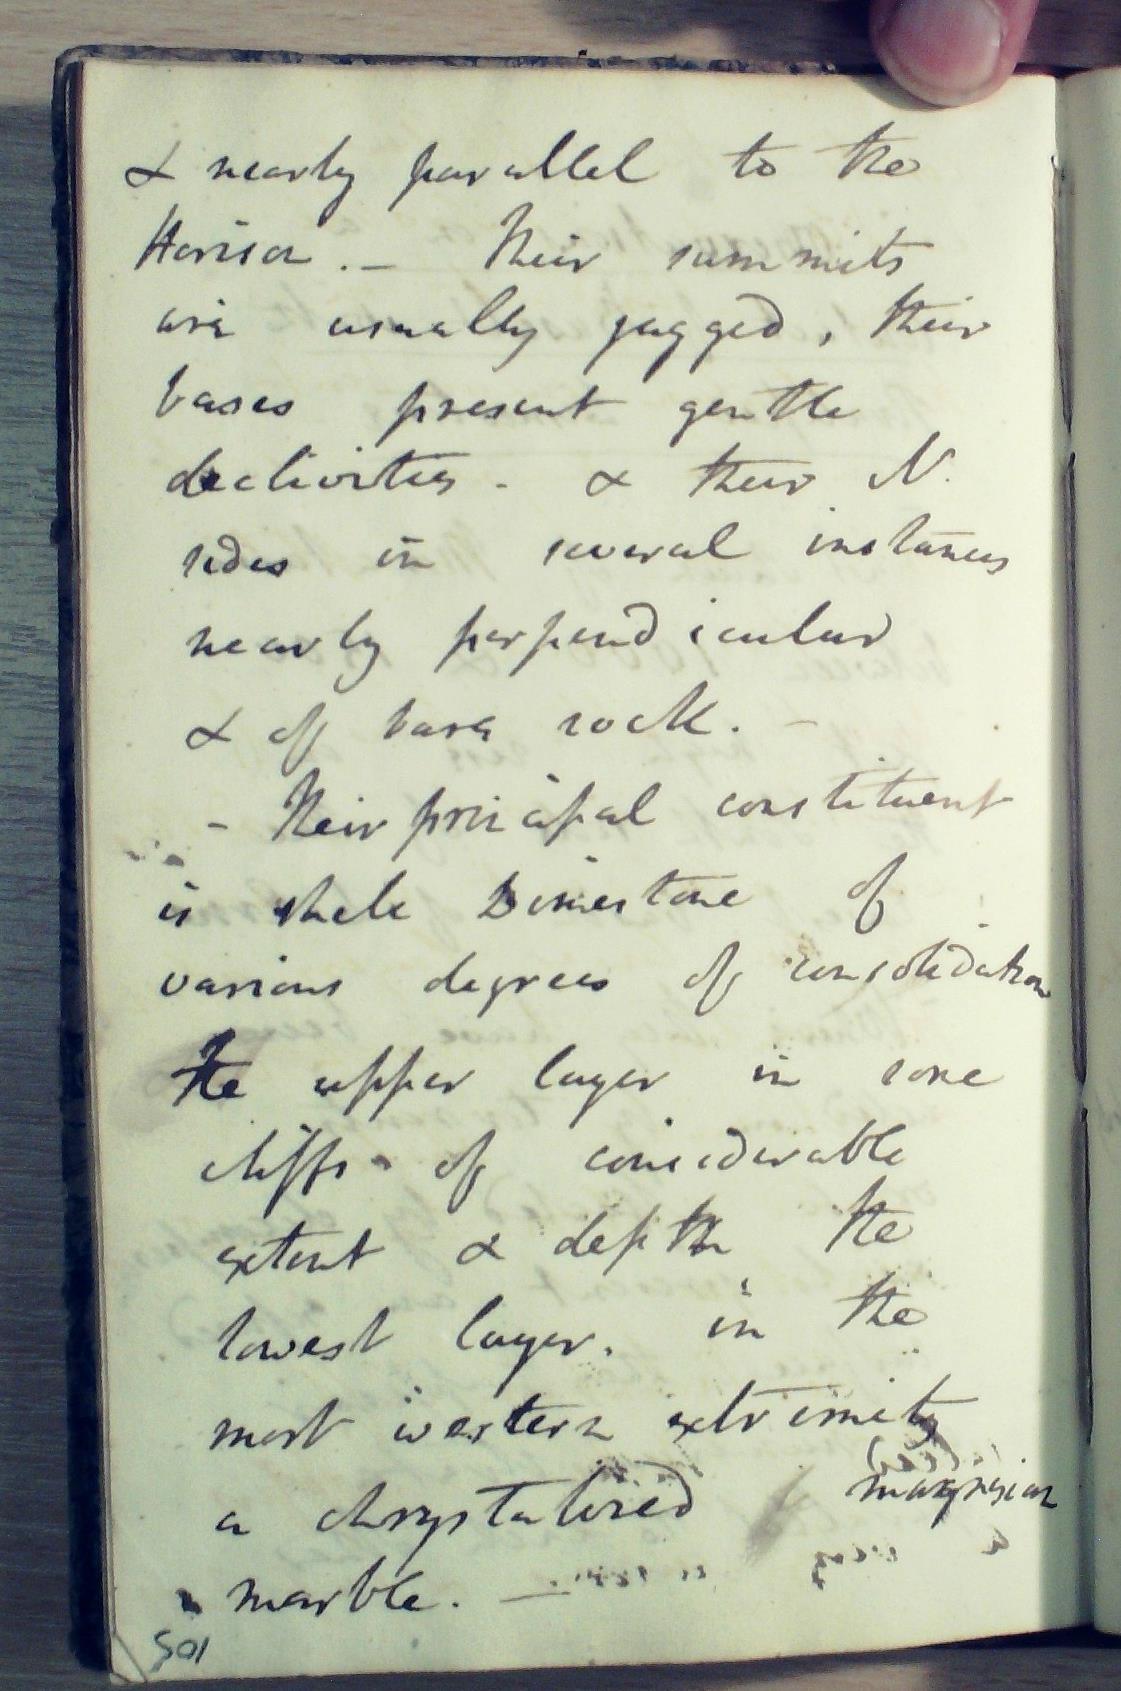 & nearly parallel to the
Horison. - Their summits
are usually jagged, their
bases present gentle
declivities - & their N.
sides in several instances
nearly perpendicular
& of bare rock. -
- Their principal constituent
is shele Limestone of
various degrees of consolidation
The upper layer in some
cliffs - of considerable
extent & depth the
lowest layer. in the
most western extremity
a chrystalized magnesian
marble. -
501